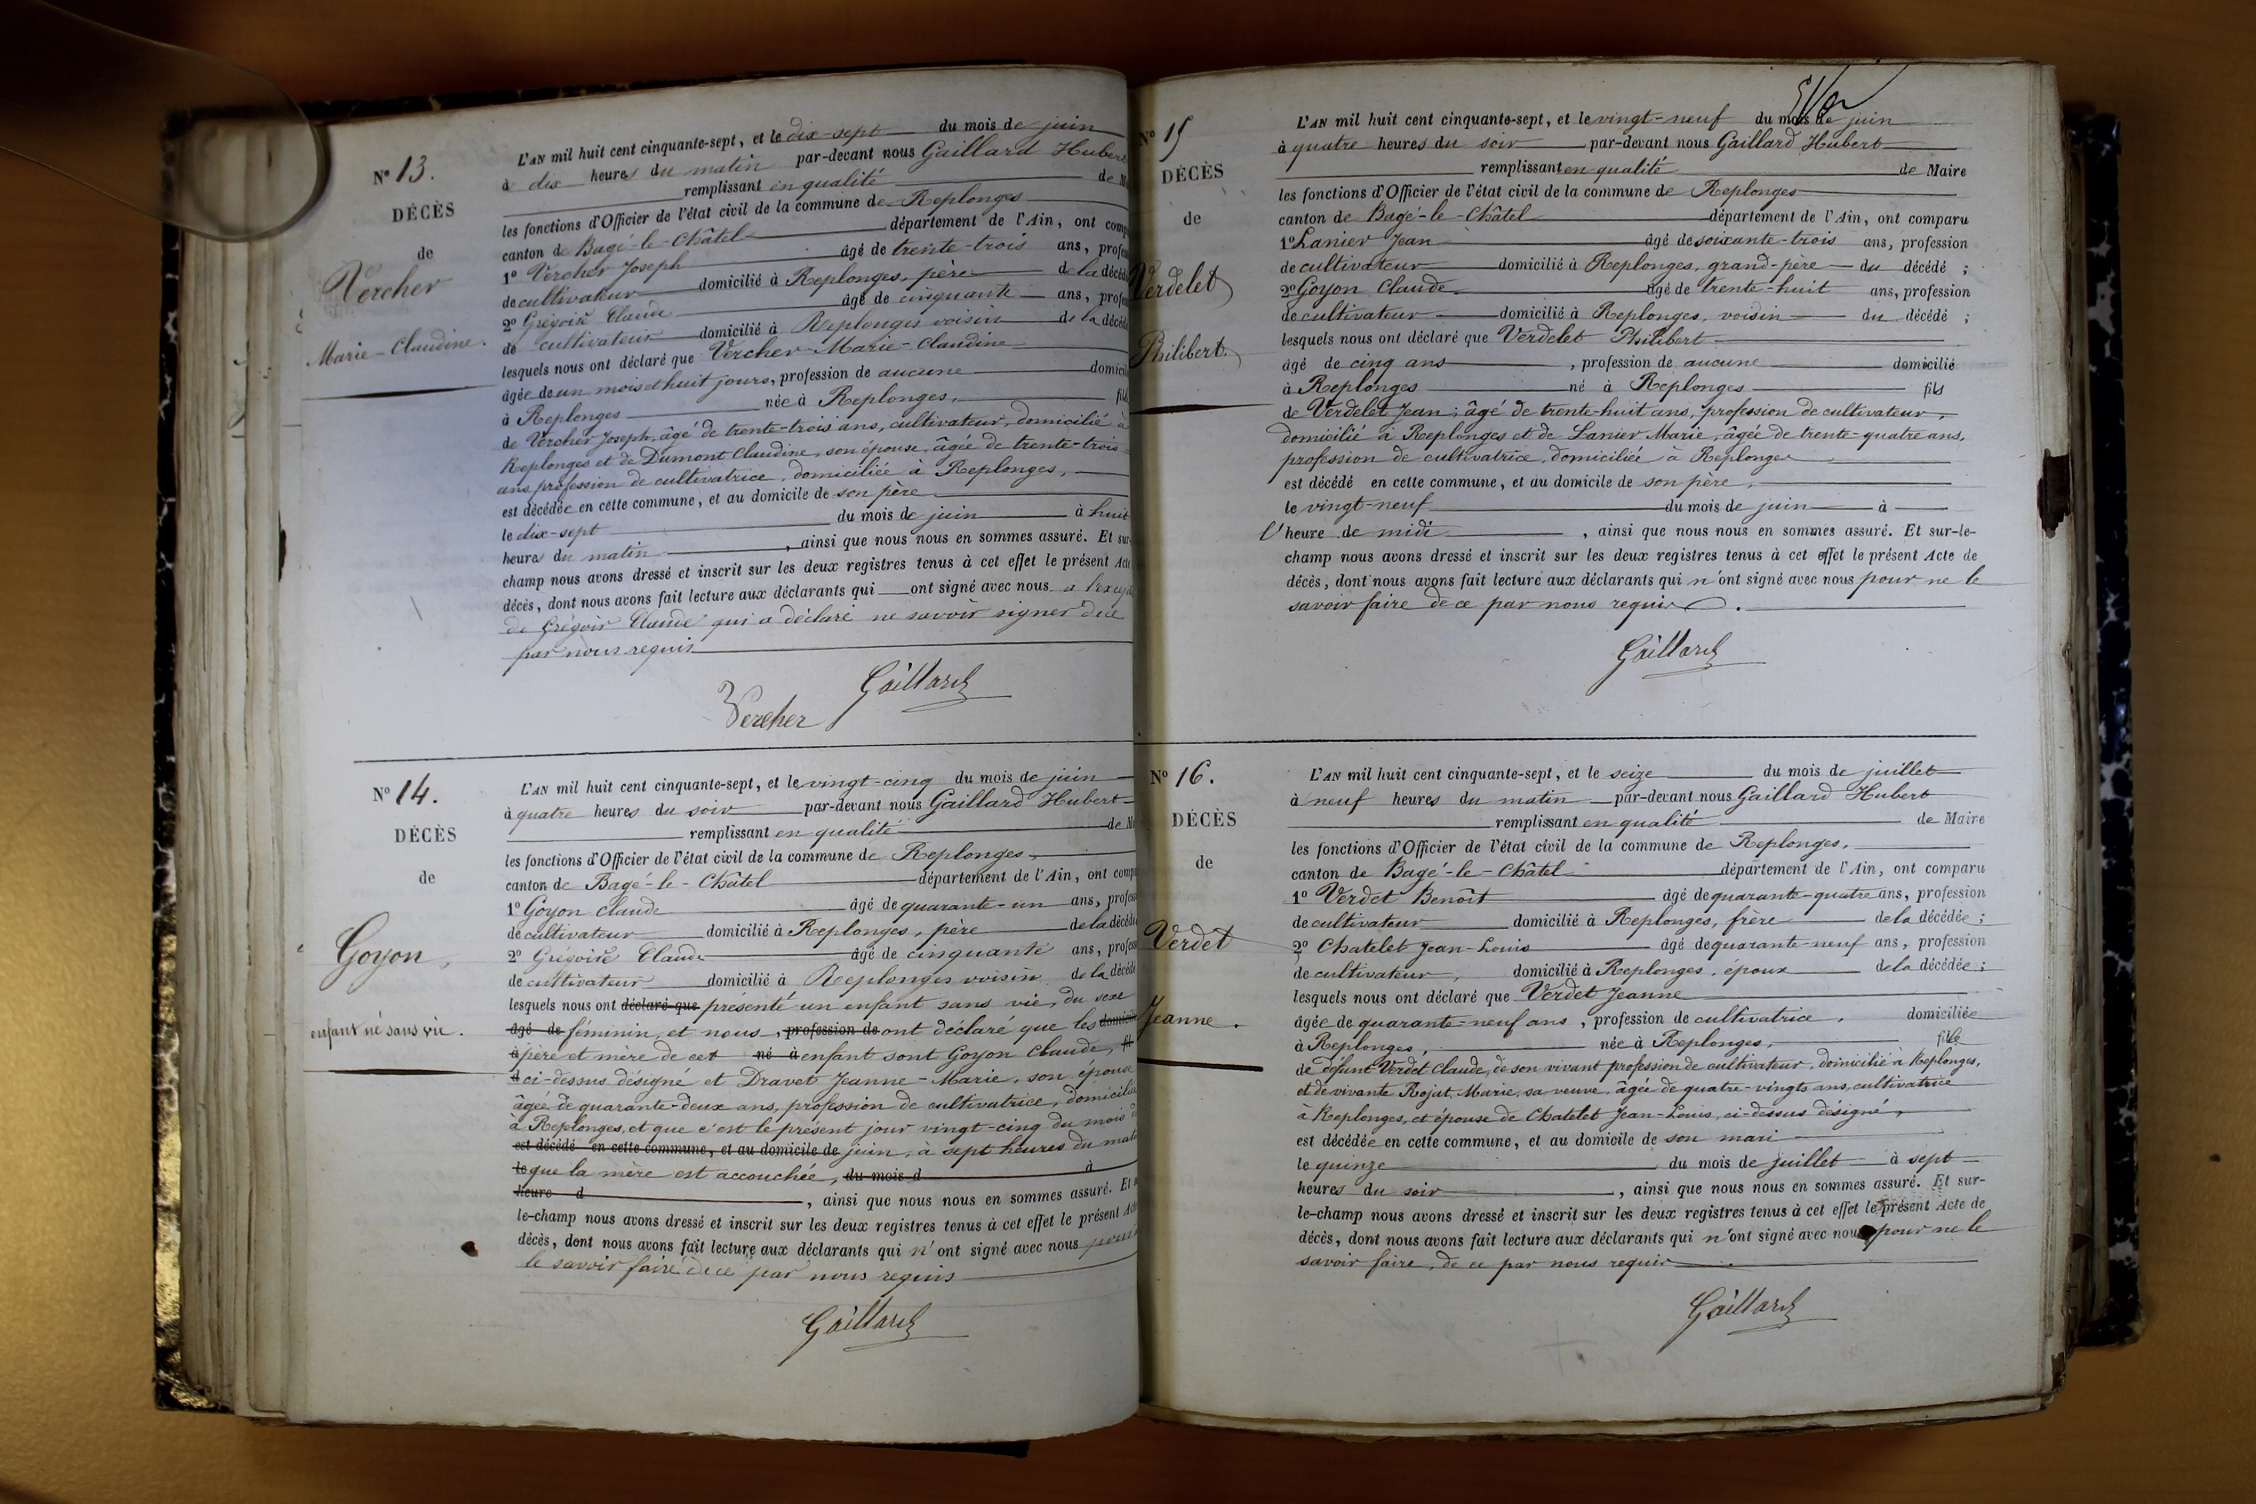 Nº 13.
DÉCÈS
de
Vercher
Marie-Claudine.
L'AN mil huit cent cinquante-sept, et le dix-sept du mois de juin
à dix heures du matin par-devant nous Gaillard Hubert
remplissant en qualité de
les fonctions d'Officier de l'état civil de la commune de Replonges
canton de Bagé-le-Châtel département de l'Ain, ont
1º Vercher Joseph âgé de trente-trois ans,
de cultivateur domicilié à Replonges, père de la
2º Grégoire Claude âgé de cinquante ans,
de cultivateur domicilié à Replonges voisin de la
lesquels nous ont déclaré que Vercher Marie-Claudine
âgée de un mois et huit jours, profession de aucune
à Replonges née à Replonges,
de Vercher Joseph, âgé de trente-trois ans, cultivateur, domicilié à
Replonges et de Dumont Claudine, son épouse, âgée de trente-trois
ans profession de cultivatrice, domiciliée à Replonges,
est décédée en cette commune, et au domicile de son père
le dix-sept du mois de juin à huit
heures du matin, ainsi que nous nous en sommes assuré. Et sur-
champ nous avons dressé et inscrit sur les deux registres tenus à cet effet le présent Acte
décès, dont nous avons fait lecture aux déclarants qui ont signé avec nous a
de Grégoir Claude qui a déclaré ne savoir signer de ce
par nous requis
Gaillard
Vercher
Nº 14.
DÉCÈS
de
Goyon,
enfant né sans vie.
L'AN mil huit cent cinquante-sept, et le vingt-cinq du mois de juin
à quatre heures du soir par-devant nous Gaillard Hubert
remplissant en qualité de
les fonctions d'Officier de l'état civil de la commune de Replonges
canton de Bagé-le-Châtel département de l'Ain, ont
1º Goyon Claude âgé de quarante-un ans,
de cultivateur domicilié à Replonges, père de la
2º Grégoire Claude âgé de cinquante ans,
de cultivateur domicilié à Replonges voisin de la
lesquels nous ont déclaré que présenté un enfant sans vie, du sexe
âgé de féminin, et nous, profession de ont déclaré que les
à père et mère de cet né à enfant sont Goyon Claude,
d ci-dessus désigné et Dravet Jeanne-Marie, son épouse
âgée de quarante-deux ans, profession de cultivatrice, domiciliée
à Replonges, et que c'est le présent jour vingt-cinq du mois de
est décédé en cette commune, et au domicile de juin, à sept heures du
le que la mère est accouchée, du mois d à
heure d, ainsi que nous nous en sommes assuré. Et
le-champ nous avons dressé et inscrit sur les deux registres tenus à cet effet le présent
décès, dont nous avons fait lecture aux déclarants qui n'ont signé avec nous pour
le savoir faire de ce par nous requis
Gaillard
Nº 15
DÉCÈS
de
Verdelet
Philibert.
L'AN mil huit cent cinquante-sept, et le vingt-neuf du mois de juin
à quatre heures du soir par-devant nous Gaillard Hubert
remplissant en qualité de Maire
les fonctions d'Officier de l'état civil de la commune de Replonges
canton de Bagé-le-Châtel département de l'Ain, ont comparu
1º Lanier Jean âgé de soixante-trois ans, profession
de cultivateur domicilié à Replonges, grand-père du décédé ;
2º Goyon Claude âgé de trente-huit ans, profession
de cultivateur domicilié à Replonges, voisin du décédé ;
lesquels nous ont déclaré que Verdelet Philibert
âgé de cinq ans, profession de aucune domicilié
à Replonges né à Replonges fils
de Verdelet Jean, âgé de trente-huit ans, profession de cultivateur,
domicilié à Replonges et de Lanier Marie, âgée de trente-quatre ans,
profession de cultivatrice, domiciliée à Replonges
est décédé en cette commune, et au domicile de son père,
le vingt-neuf du mois de juin à
l'heure de midi, ainsi que nous nous en sommes assuré. Et sur-le-
champ nous avons dressé et inscrit sur les deux registres tenus à cet effet le présent Acte de
décès, dont nous avons fait lecture aux déclarants qui n'ont signé avec nous pour ne le
savoir faire de ce par nous requis.
Gaillard
Nº 16.
DÉCÈS
de
Verdet
Jeanne.
L'AN mil huit cent cinquante-sept, et le seize du mois de juillet
à neuf heures du matin par-devant nous Gaillard Hubert
remplissant en qualité de Maire
les fonctions d'Officier de l'état civil de la commune de Replonges,
canton de Bagé-le-Châtel département de l'Ain, ont comparu
1º Verdet Benoît âgé de quarante-quatre ans, profession
de cultivateur domicilié à Replonges, frère de la décédée ;
2º Chatelet Jean-Louis âgé de quarante-neuf ans, profession
de cultivateur, domicilié à Replonges, époux de la décédée ;
lesquels nous ont déclaré que Verdet Jeanne
âgée de quarante-neuf ans, profession de cultivatrice, domiciliée
à Replonges, née à Replonges, fille
de défunt Verdet Claude, de son vivant profession de cultivateur, domicilié à Replonges,
et de vivante Rojat Marie, sa veuve, âgée de quatre-vingts ans, cultivatrice
à Replonges, et épouse de Chatelet Jean-Louis, ci-dessus désigné,
est décédée en cette commune, et au domicile de son mari
le quinze du mois de juillet à sept
heures du soir, ainsi que nous nous en sommes assuré. Et sur-
le-champ nous avons dressé et inscrit sur les deux registres tenus à cet effet le présent Acte de
décès, dont nous avons fait lecture aux déclarants qui n'ont signé avec nous pour ne le
savoir faire, de ce par nous requis.
Gaillard